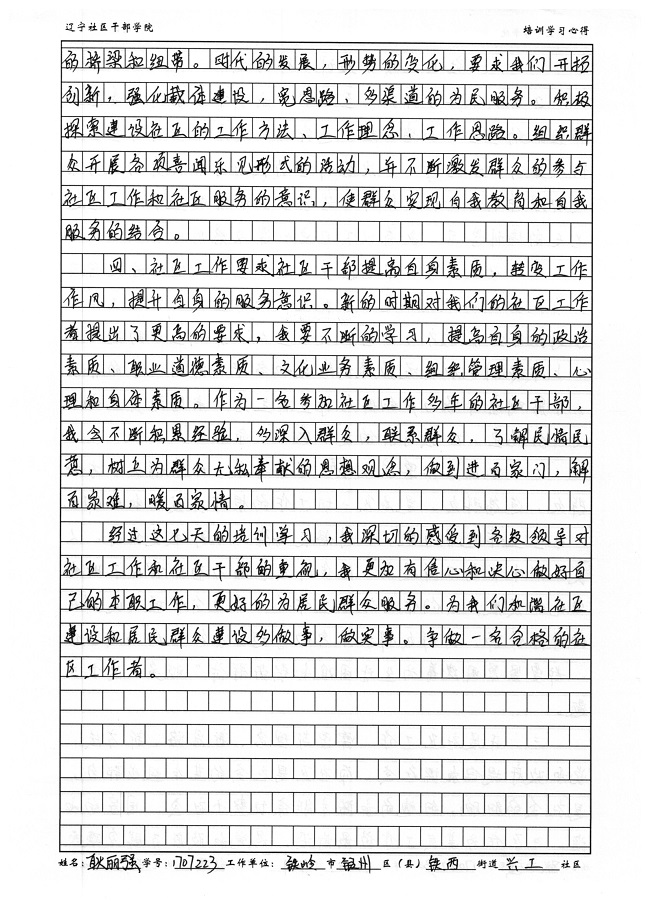 辽宁社区干部学院 培训学习心得
的桥梁和纽带。时代的发展，形势的变化，要求我们开拓
创新，强化载体建设，宽思路、多渠道的为民服务。积极
探索建设社区的工作方法、工作理念、工作思路。组织群
众开展各项喜闻乐见形式的活动，并不断激发群众的参与
社区工作和社区服务的意识，使群众实现自我教育和自我
服务的结合。
四、社区工作要求社区干部提高自身素质，转变工作
作风，提升自身的服务意识。新的时期对我们的社区工作
者提出了更高的要求，我要不断的学习，提高自身的政治
素质、职业道德素质、文化业务素质、组织管理素质、心
理和身体素质。作为一名参加社区工作多年的社区干部，
我会不断积累经验，多深入群众，联系群众，了解民情民
意，树立为群众无私奉献的思想观念，做到进百家门，解
百家难，暖百家情。
经过这七天的培训学习，我深切的感受到各级领导对
社区工作和社区干部的重视，我更加有信心和决心做好自
己的本职工作，更好的为居民群众服务。为我们和谐社区
建设和居民群众建设多做事，做实事。争做一名合格的社
区工作者。
姓名：耿丽强 学号：1707223 工作单位：铁岭 市 银州 区（县）铁西 街道 兴工 社区